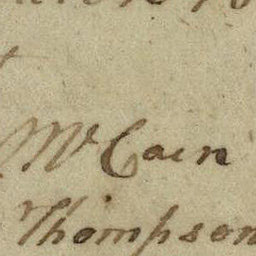 Mr Cain
Thompson